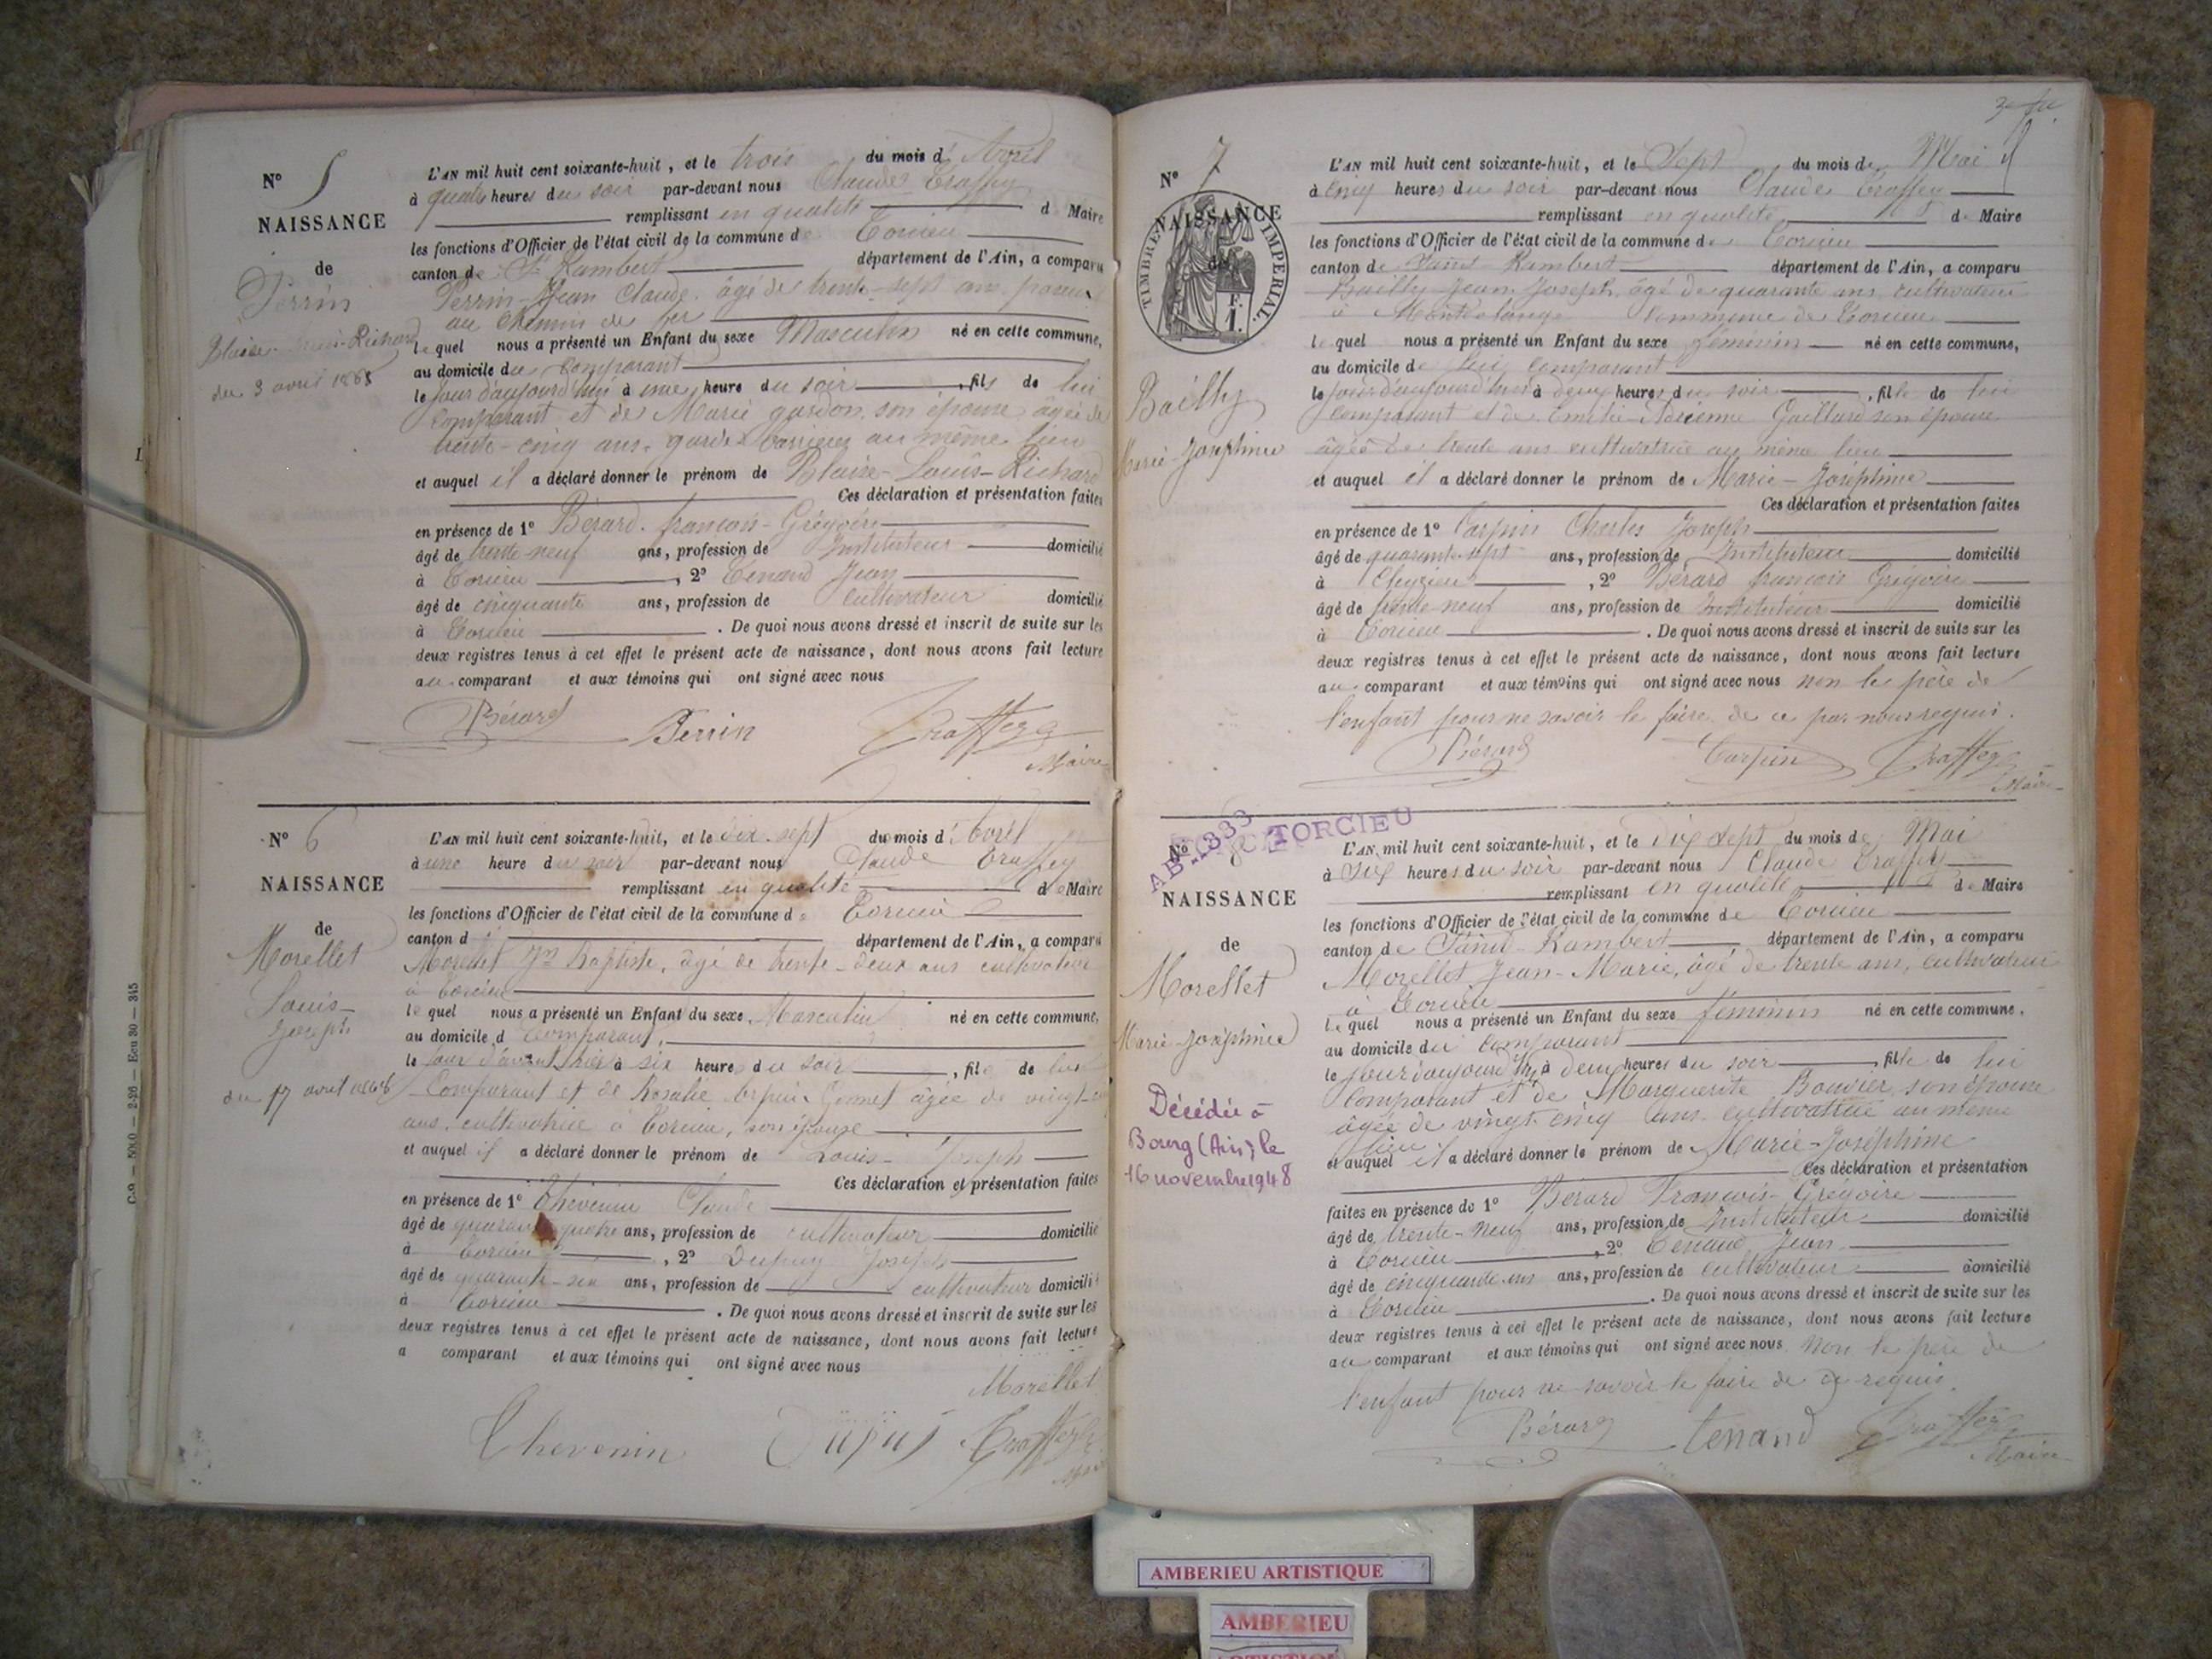 Nº 5
NAISSANCE
de
Perrin
Blaise-Louis-Richard
du 3 avril 1868
L'AN mil huit cent soixante-huit, et le trois du mois d'Avril
à quatre heures du soir par-devant nous Claude Traffey
remplissant en qualité de Maire
les fonctions d'Officier de l'état civil de la commune de Torcieu
canton de St Rambert département de l'Ain, a comparu
Perrin Jean Claude âgé de trente-sept ans
au chemin de fer
lequel nous a présenté un Enfant du sexe Masculin né en cette commune,
au domicile du comparant
le jour d'aujourd'hui à une heure du soir, fils de lui
comparant et de Marie gardon son épouse âgée de
trente-cinq ans. garde-barrière au même lieu
et auquel il a déclaré donner le prénom de Blaise-Louis-Richard
Ces déclaration et présentation faites
en présence de 1º Bérard françois-Grégoire
âgé de trente-neuf ans, profession de Instituteur domicilié
à Torcieu, 2º Tenand Jean
âgé de cinquante ans, profession de cultivateur domicilié
à Torcieu. De quoi nous avons dressé et inscrit de suite sur les
deux registres tenus à cet effet le présent acte de naissance, dont nous avons fait lecture
au comparant et aux témoins qui ont signé avec nous
Bérard Perrin Traffey
Maire
Nº 6
NAISSANCE
de
Morellet
Louis-
Joseph
du 17 avril 1868
L'AN mil huit cent soixante-huit, et le dix-sept du mois d'Avril
à une heure du soir par-devant nous Claude Traffey
remplissant en qualité de Maire
les fonctions d'Officier de l'état civil de la commune de Torcieu
canton d département de l'Ain, a comparu
Morellet Jn Baptiste, âgé de trente-deux ans cultivateur
à Torcieu
lequel nous a présenté un Enfant du sexe Masculin né en cette commune,
au domicile d comparant,
le jour d'avant hier à six heures du soir, fils de lui
comparant et de Rosalie Gonnet âgée de vingt-
ans, cultivatrice à Torcieu, son épouse
et auquel il a déclaré donner le prénom de Louis-Joseph
Ces déclaration et présentation faites
en présence de 1º Thévenin Claude
âgé de quarante quatre ans, profession de cultivateur domicilié
à Torcieu, 2º Dupuy Joseph
âgé de quarante-six ans, profession de cultivateur domicilié
à Torcieu. De quoi nous avons dressé et inscrit de suite sur les
deux registres tenus à cet effet le présent acte de naissance, dont nous avons fait lecture
a comparant et aux témoins qui ont signé avec nous
Morellet
Thevenin Traffey
C.9 — 5000 — 2-26 — Ecu 30 — 345
Nº 7
NAISSANCE
de
TIMBRE IMPERIAL.
1 F.
Bailly
Marie-Joséphine
L'AN mil huit cent soixante-huit, et le Sept du mois de Mai
à cinq heures du soir par-devant nous Claude Traffey
remplissant en qualité de Maire
les fonctions d'Officier de l'état civil de la commune de Torcieu
canton de Saint-Rambert département de l'Ain, a comparu
Bailly Jean Joseph, âgé de quarante ans cultivateur
à commune de Torcieu
lequel nous a présenté un Enfant du sexe féminin né en cette commune,
au domicile de lui comparant
le jour d'aujourd'hui à deux heures du soir, fille de lui
comparant et de Emilie Adrienne Gaillard son épouse
âgée de trente ans cultivatrice au même lieu
et auquel il a déclaré donner le prénom de Marie-Joséphine
Ces déclaration et présentation faites
en présence de 1º Carpin Charles Joseph
âgé de quarante-sept ans, profession de Instituteur domicilié
à Cleyzieu, 2º Bérard françois Grégoire
âgé de trente-neuf ans, profession de Instituteur domicilié
à Torcieu. De quoi nous avons dressé et inscrit de suite sur les
deux registres tenus à cet effet le présent acte de naissance, dont nous avons fait lecture
au comparant et aux témoins qui ont signé avec nous non le père de
l'enfant pour ne savoir le faire de ce par nous requis.
Bérard Carpin Traffey
Maire
TORCIEU
Nº 8
NAISSANCE
de
Morellet
Marie-Joséphine
Décédée à
Bourg (Ain) le
16 novembre 1948
L'AN mil huit cent soixante-huit, et le dix sept du mois de Mai
à six heures du soir par-devant nous Claude Traffey
remplissant en qualité de Maire
les fonctions d'Officier de l'état civil de la commune de Torcieu
canton de Saint-Rambert département de l'Ain, a comparu
Morellet Jean-Marie, âgé de trente ans, cultivateur
à Torcieu
lequel nous a présenté un Enfant du sexe féminin né en cette commune,
au domicile du comparant
le jour d'aujourd'hui à deux heures du soir, fille de lui
comparant et de Marguerite Bouvier son épouse
âgée de vingt-cinq ans cultivatrice au même
lieu
et auquel il a déclaré donner le prénom de Marie-Joséphine
Ces déclaration et présentation
faites en présence de 1º Bérard François-Grégoire
âgé de trente-neuf ans, profession de Instituteur domicilié
à Torcieu, 2º Tenand Jean
âgé de cinquante un ans, profession de cultivateur domicilié
à Torcieu. De quoi nous avons dressé et inscrit de suite sur les
deux registres tenus à cet effet le présent acte de naissance, dont nous avons fait lecture
au comparant et aux témoins qui ont signé avec nous Non le père de
l'enfant pour ne savoir le faire de ce requis.
Bérard tenand Traffey
Maire
AMBERIEU ARTISTIQUE
AMBERIEU
ARTISTIQUE